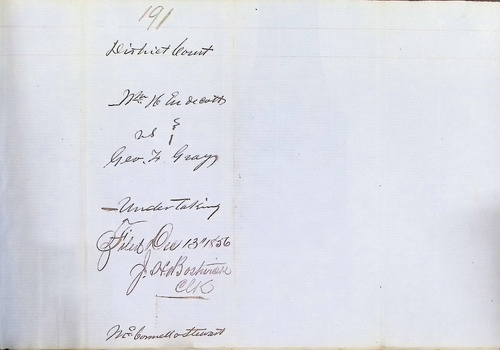 191
District Court
Wm H Endecott
vs
Geo. F. Gragg
Undertaking
Filed Dec 13th 1856
J. H.
Clk
McConnell & Stewart